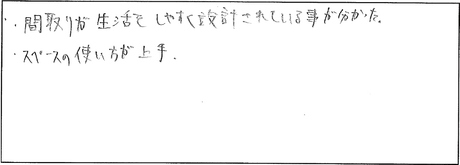 ・間取りが生活をしやすく設計されている事が分かった。
・スペースの使い方が上手.